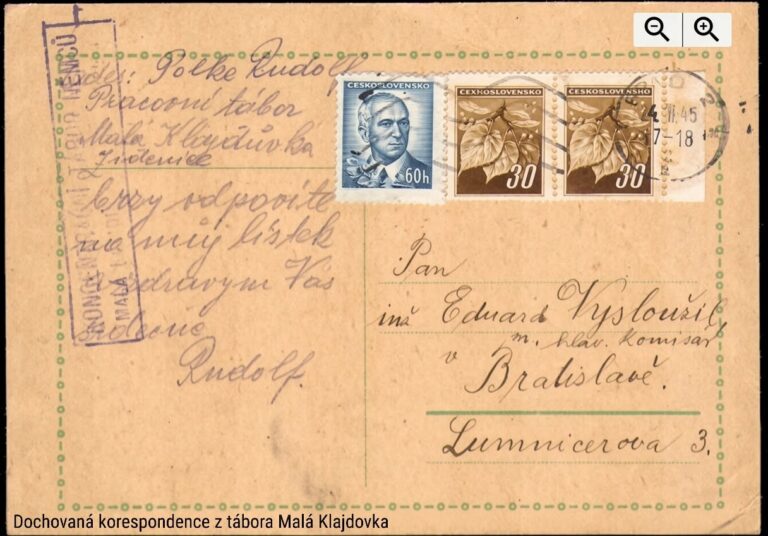 KONCENTRAČNÍ TÁBOR NĚMCŮ
MALÁ
Polke Rudolf
Pracovní tábor
Malá Klajdůvka
Židenice
brzy odpovíte
na můj lístek
zdravým Vás
srdečně
Rudolf.
ČESKOSLOVENSKO
60h
ČESKOSLOVENSKO
30
ČESKOSLOVENSKO
30
BRNO 2
II.45
17-18
Pan
Eduard Vysloužil
m. hlav. komisař
v
Bratislavě.
Lumnicerova 3.
Dochovaná korespondence z tábora Malá Klajdovka